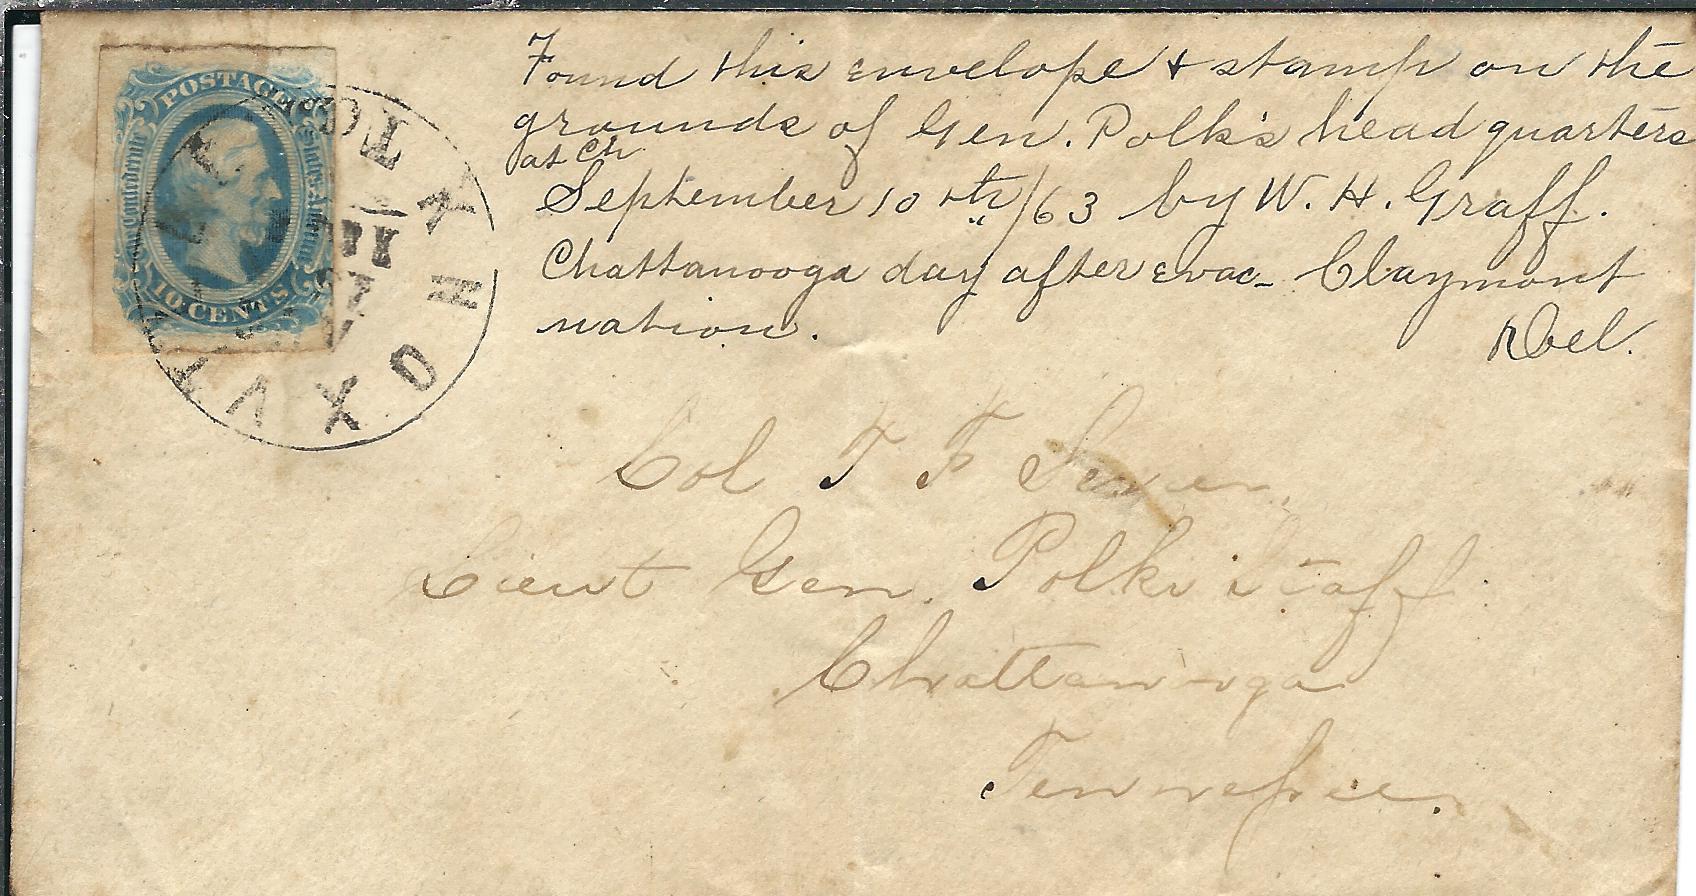 POSTAGE
Confederate States of America
10 CENTS
KNOXVI
Found this envelope & stamp on the
grounds of Gen. Polk's head quarters
at Ch
September 10th/63 by W. H. Graff.
Chattanooga day after evac- Claymont
uation. Del.
Col T F
Lieut Gen. Polks Staff
Chattanooga
Tennessee.